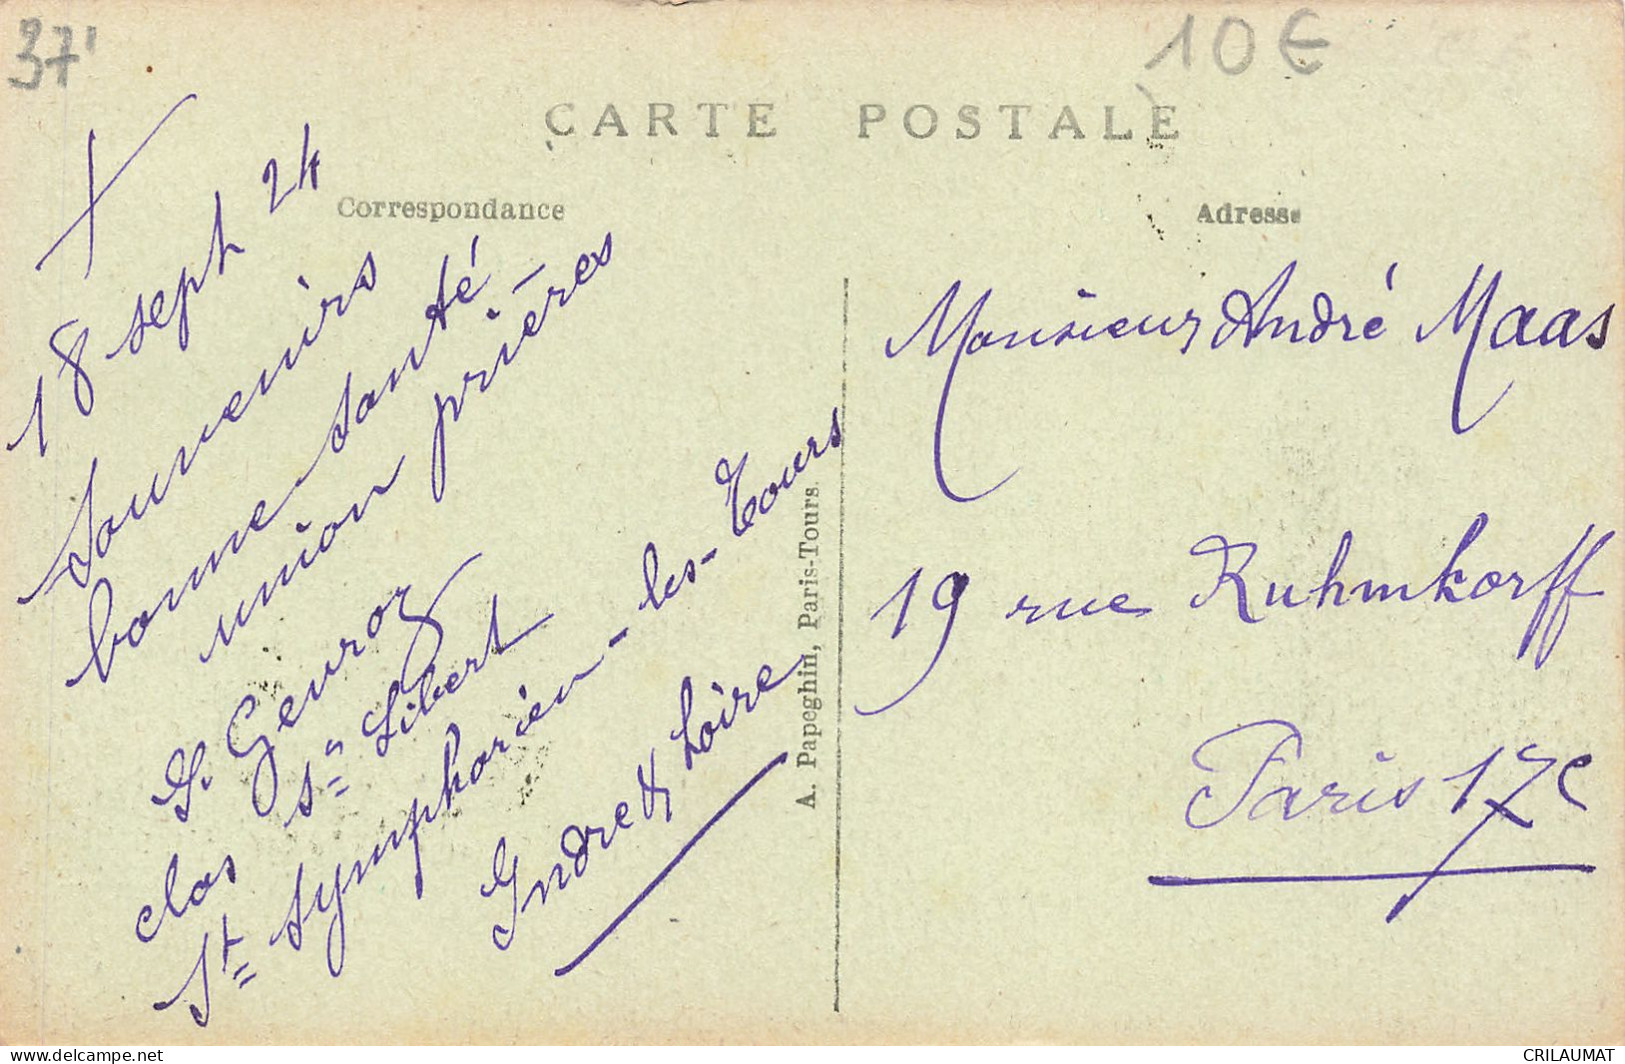 37'
10€
CARTE POSTALE
Correspondance
Adresse
18 sept 24
Souvenirs
bonne santé
union prières
Gevroz
clos St Libert
St Symphorien-les-Tours
Indre & Loire
A. Papeghin, Paris-Tours.
Monsieur André Maas
19 rue Ruhmkorff
Paris 17e
www.delcampe.net
CRILAUMAT